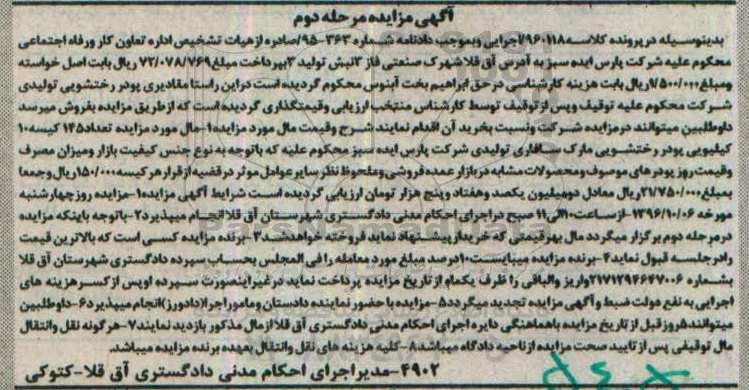 آگهی مزایده مرحله دوم
بدینوسیله در پرونده کلاسه ۹۶۰۱۱۸/اجرایی وبموجب دادنامه شماره ۳۶۳-۹۵/صادره از هیات تشخیص اداره تعاون کار ورفاه اجتماعی
محکوم علیه شرکت پارس ایده سبز به آدرس آق قلا شهرک صنعتی فاز ۲نبش تولید ۳بپرداخت مبلغ ۷۲/۰۷۸/۷۶۹ ریال بابت اصل خواسته
ومبلغ ۱/۵۰۰/۰۰۰ریال بابت هزینه کارشناسی درحق ابراهیم بخت آبنوس محکوم گردیده است دراین راستا مقادیری پودر رختشویی تولیدی
شرکت محکوم علیه توقیف وپس از توقیف توسط کارشناس منتخب ارزیابی وقیمتگذاری گردیده است که از طریق مزایده بفروش میرسد
داوطلبین میتوانند درمزایده شرکت ونسبت بخرید آن اقدام نمایند شرح وقیمت مال مورد مزایده ۱-مال مورد مزایده تعداد ۱۴۵ کیسه ۱۰
کیلیویی پودر رختشویی مارک سافاری تولیدی شرکت پارس ایده سبز محکوم علیه که باتوجه به نوع جنس کیفیت بازار ومیزان مصرف
وقیمت روز پودرهای موصوف ومحصولات مشابه دربازار عمده فروشی وملحوظ نظر سایر عوامل موثر در قضیه از قرار هر کیسه ۱۵۰/۰۰۰ریال وجمعا
بمبلغ ۲۱/۷۵۰/۰۰۰ریال معادل دومیلیون یکصد وهفتاد وپنج هزار تومان ارزیابی گردیده است شرایط آگهی مزایده ۱-مزایده روز چهارشنبه
مورخه ۱۳۹۶/۱۰/۰۶ -از ساعت ۱۰الی ۱۱ صبح دراجرای احکام مدنی دادگستری شهرستان آق قلاانجام میپذیرد ۲-باتوجه باینکه مزایده
درمرحله دوم برگزار میگردد مال بهرقیمتی که خریدار پیشنهاد نماید فروخته خواهدشد ۳-برنده مزایده کسی است که بالاترین قیمت
رادرجلسه قبول نماید ۴-برنده مزایده میبایست ۱۰درصد مبلغ مورد معامله را فی المجلس بحساب سپرده دادگستری شهرستان آق قلا
بشماره ۲۱۷۱۲۹۴۶۴۷۰۰۶واریز والباقی را ظرف یکماه از تاریخ مزایده پرداخت نماید درغیراینصورت سپرده اوپس از کسر هزینه های
اجرایی به نفع دولت ضبط وآگهی مزایده تجدید میگردد ۵-مزایده با حضور نماینده دادستان ومامور اجرا(دادورز)انجام میپذیرد ۶-داوطلبین
میتوانند ۵روز قبل از تاریخ مزایده باهماهنگی دایره اجرای احکام مدنی دادگستری آق قلا از مال مذکور بازدید نمایند ۷-هرگونه نقل وانتقال
مال توقیفی پس از تایید صحت مزایده ازناحیه دادگاه میباشد ۸-کلیه هزینه های نقل وانتقال بعهده برنده مزایده میباشد.
۴۹۰۲-مدیراجرای احکام مدنی دادگستری آق قلا-کتوکی